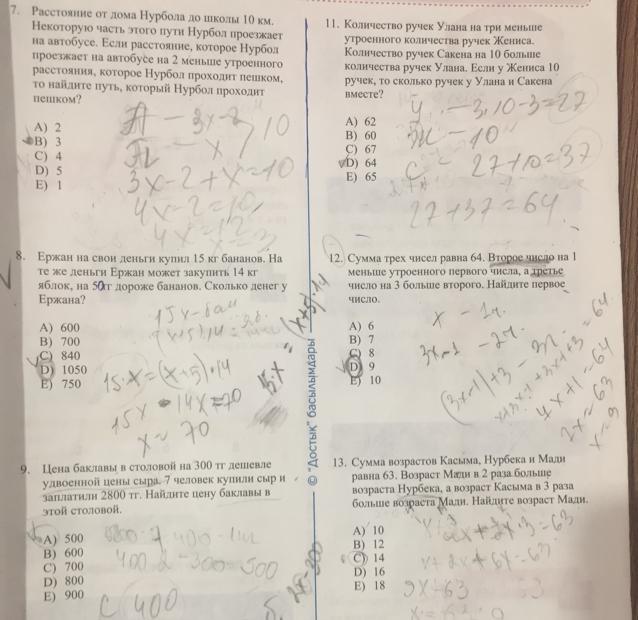 7. Расстояние от дома Нурбола до школы 10 км.
Некоторую часть этого пути Нурбол проезжает
на автобусе. Если расстояние, которое Нурбол
проезжает на автобусе на 2 меньше утроенного
расстояния, которое Нурбол проходит пешком,
то найдите путь, который Нурбол проходит
пешком?
A) 2
B) 3
C) 4
D) 5
E) 1
А - 3x-2
П - x
10
3x-2+x=10
4x-2=10
4x=12
x=3
8. Ержан на свои деньги купил 15 кг бананов. На
те же деньги Ержан может закупить 14 кг
яблок, на 5 тг дороже бананов. Сколько денег у
Ержана?
A) 600
B) 700
C) 840
D) 1050
E) 750
15x - бан
(x+5)14 =
15·x=(x+5)·14
15x - 14x=70
x= 70
15·x = (x+5)·14
9. Цена баклавы в столовой на 300 тг дешевле
удвоенной цены сыра. 7 человек купили сыр и
заплатили 2800 тг. Найдите цену баклавы в
этой столовой.
A) 500
B) 600
C) 700
D) 800
E) 900
400·2-300=500
С 400
Б. 2x-300
© "Достык" басылымдары
11. Количество ручек Улана на три меньше
утроенного количества ручек Жениса.
Количество ручек Сакена на 10 больше
количества ручек Улана. Если у Жениса 10
ручек, то сколько ручек у Улана и Сакена
вместе?
A) 62
B) 60
C) 67
D) 64
E) 65
У - 3·10-3=27
Ж - 10
С - 27+10=37
27+37=64
12. Сумма трех чисел равна 64. Второе число на 1
меньше утроенного первого числа, а третье
число на 3 больше второго. Найдите первое
число.
A) 6
B) 7
C) 8
D) 9
E) 10
x - 1ч.
3x-1 - 2ч.
(3x-1)+3 - 3ч.
x+3x-1+3x-1+3=64
7x+1=64
7x=63
x=9
13. Сумма возрастов Касыма, Нурбека и Мади
равна 63. Возраст Мади в 2 раза больше
возраста Нурбека, а возраст Касыма в 3 раза
больше возраста Мади. Найдите возраст Мади.
A) 10
B) 12
C) 14
D) 16
E) 18
x+2x+2x·3=63
x+2x+6x=63
9x=63